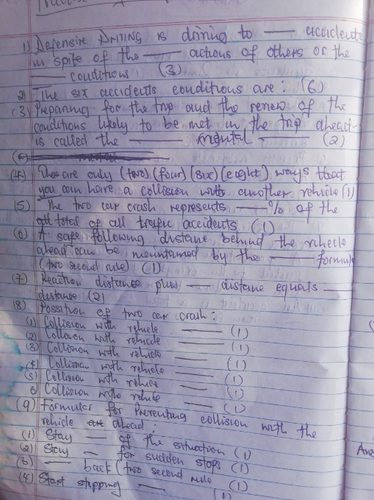 1) Defensive Driving is driving to —— accidents
in spite of the —— actions of others or the
—— conditions (3)
2) The six accidents conditions are: (6)
(3) Preparing for the trip and the review of the
conditions likely to be met in the trip ahead
is called the —— mental —— (2)
(4) There are only (two) (four) (six) (eight) ways that
you can have a collision with another vehicle (1)
(5) The two car crash represents ——% of the
all total of all traffic accidents (1)
(6) A safe following distance behind the vehicle
ahead can be maintained by the —— formula
(two second rule) (1)
(7) Reaction distance plus —— distance equals ——
distance (2)
(8) Position of two car crash:
(1) Collision with vehicle —— (1)
(2) Collision with vehicle —— (1)
(3) Collision with vehicle —— (1)
(4) Collision with vehicle —— (1)
(5) Collision with vehicle —— (1)
6 Collision with vehicle —— (1)
(9) Formular for preventing collision with the
vehicle ahead:
(1) Stay —— of the situation (1)
(2) Stay —— for sudden stops (1)
(3) —— back (two second rule (1)
(4) Start stopping —— (1)